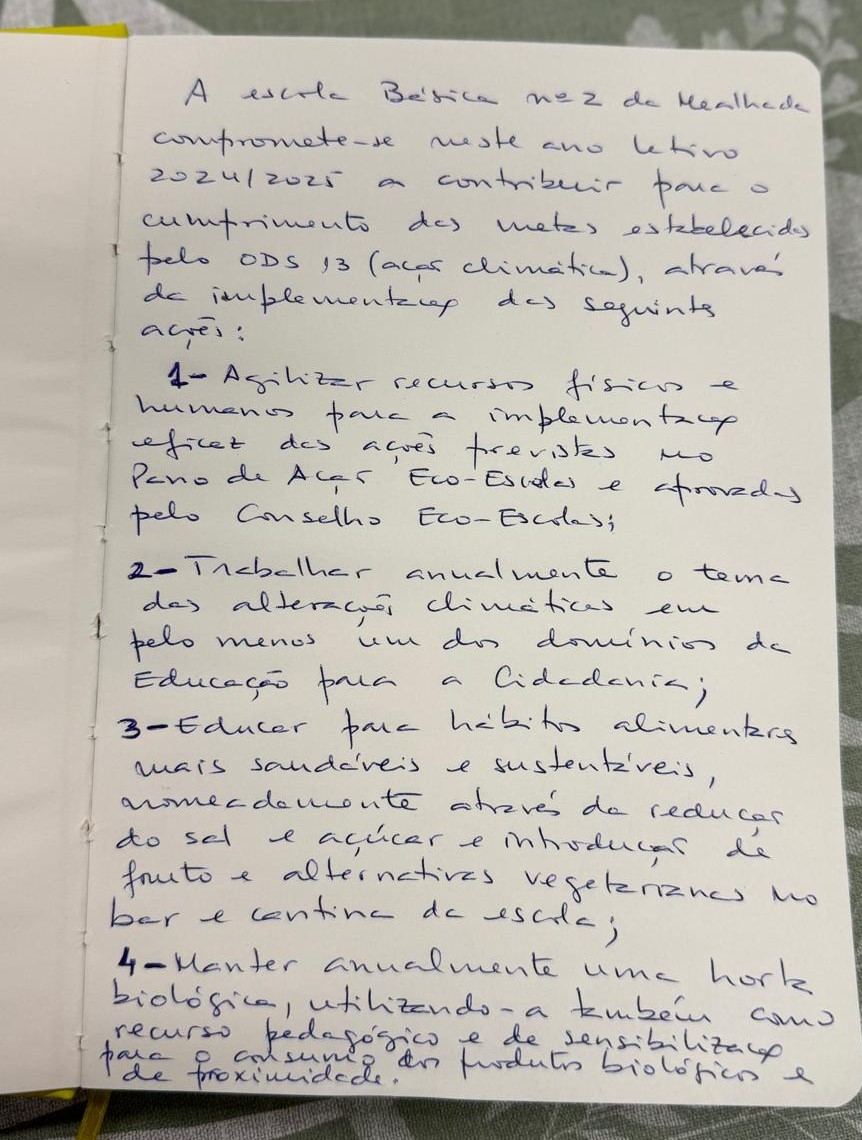 A escola Básica nº2 da Mealhada
compromete-se neste ano letivo
2024/2025 a contribuir para o
cumprimento das metas estabelecidas
pelo ODS 13 (ação climática), através
da implementação das seguintes
ações:
1- Agilizar recursos físicos e
humanos para a implementação
eficaz das ações previstas no
Pano de Ação Eco-Escolas e aprovadas
pelo Conselho Eco-Escolas;
2- Trabalhar anualmente o tema
das alterações climáticas em
pelo menos um dos domínios da
Educação para a Cidadania;
3- Educar para hábitos alimentares
mais saudáveis e sustentáveis,
nomeadamente através da redução
do sal e açúcar e introdução de
fruto e alternativas vegetarianas no
bar e cantina da escola;
4- Manter anualmente uma horta
biológica, utilizando-a também como
recurso pedagógico e de sensibilização
para o consumo dos produtos biológicos e
de proximidade.